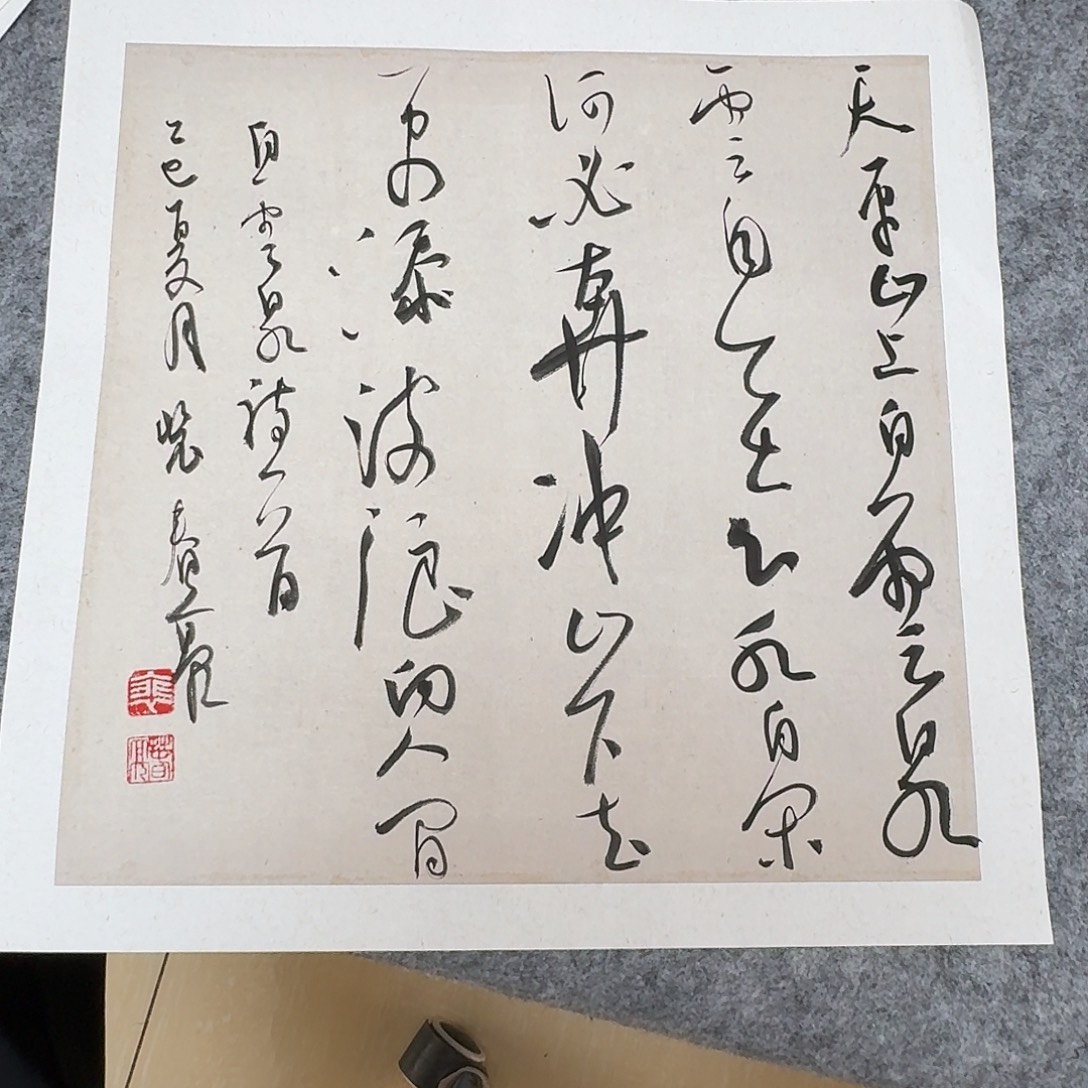 天平山上白雲泉
雲自无心水自閑
何必奔冲山下去
更添波浪向人間
白雲泉詩一首
乙巳夏月